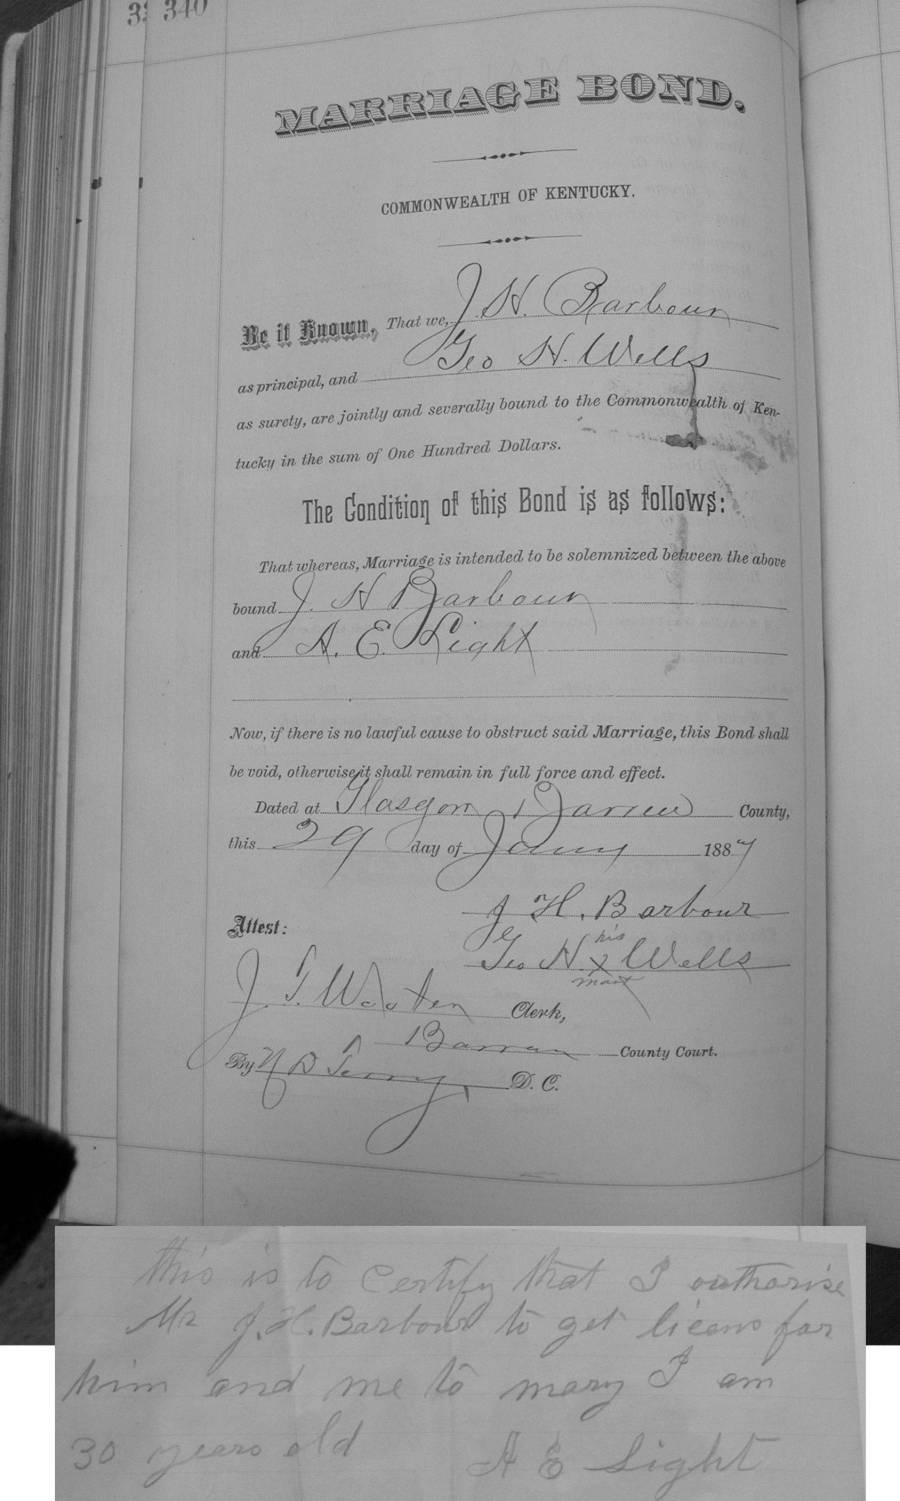 340
MARRIAGE BOND.
COMMONWEALTH OF KENTUCKY.
Be it Known, That we, J. H. Barbour
as principal, and Geo H. Wells
as surety, are jointly and severally bound to the Commonwealth of Ken-
tucky in the sum of One Hundred Dollars.
The Condition of this Bond is as follows:
That whereas, Marriage is intended to be solemnized between the above
bound J. H Barbour
and A. E. Light
Now, if there is no lawful cause to obstruct said Marriage, this Bond shall
be void, otherwise it shall remain in full force and effect.
Dated at Glasgow Barren County,
this 29 day of Jany 1887
J H. Barbour
Attest:
his
Geo H. x Wells
mark
J. T. Wooten Clerk,
Barren County Court.
By Terry, D. C.
this is to certify that I outhorise
Mr J. H. Barbour to get licens for
him and me to mary I am
30 years old
A E Light